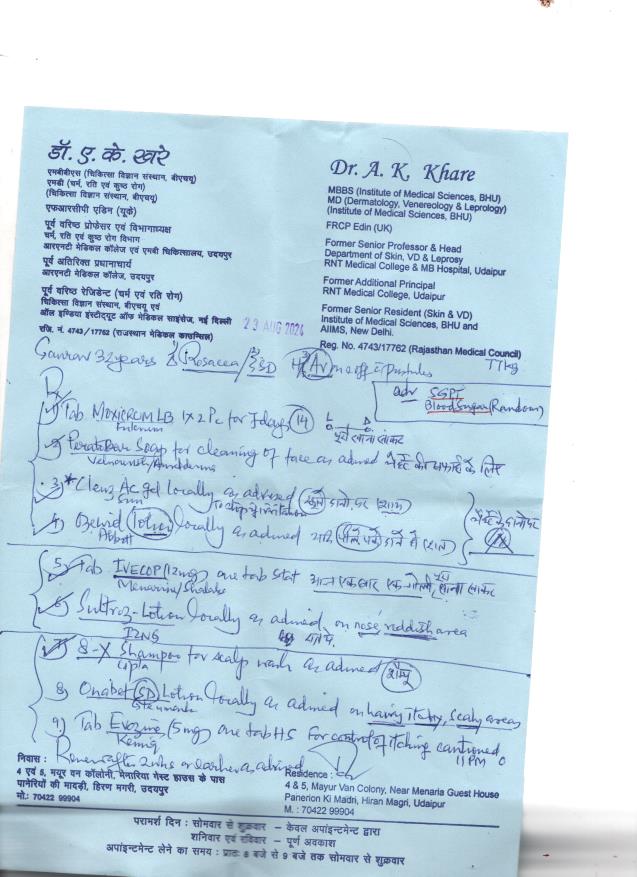 डॉ. ए. के. खरे
एमबीबीएस (चिकित्सा विज्ञान संस्थान, बीएचयू)
एमडी (चर्म, रति एवं कुष्ठ रोग)
(चिकित्सा विज्ञान संस्थान, बीएचयू)
एफआरसीपी एडिन (यूके)
पूर्व वरिष्ठ प्रोफेसर एवं विभागाध्यक्ष
चर्म, रति एवं कुष्ठ रोग विभाग
आरएनटी मेडिकल कॉलेज एवं एमबी चिकित्सालय, उदयपुर
पूर्व अतिरिक्त प्रधानाचार्य
आरएनटी मेडिकल कॉलेज, उदयपुर
पूर्व वरिष्ठ रेजिडेन्ट (चर्म एवं रति रोग)
चिकित्सा विज्ञान संस्थान, बीएचयू एवं
ऑल इण्डिया इंस्टीट्यूट ऑफ मेडिकल साइंसेज, नई दिल्ली
रजि. नं. 4743/17762 (राजस्थान मेडिकल काउन्सिल)
Dr. A. K. Khare
MBBS (Institute of Medical Sciences, BHU)
MD (Dermatology, Venereology & Leprology)
(Institute of Medical Sciences, BHU)
FRCP Edin (UK)
Former Senior Professor & Head
Department of Skin, VD & Leprosy
RNT Medical College & MB Hospital, Udaipur
Former Additional Principal
RNT Medical College, Udaipur
Former Senior Resident (Skin & VD)
Institute of Medical Sciences, BHU and
AIIMS, New Delhi.
Reg. No. 4743/17762 (Rajasthan Medical Council)
23 AUG 2024
Gaurav 32 years Rosacea / SD pustules
77kg
adv SGPT
Blood Sugar (Random)
1) Tab LB 1x2 Pc for 7 days 14
खाना खाकर
2) Soap for cleaning of face as advised चेहरे की सफाई के लिए
3) * Clenz AC gel locally as advised दानो पर शाम
4) Lotion locally as advised
Abbott
5) Tab IVECOP (12mg) one tab stat आज एक बार एक गोली, खाना खाकर
Menarini/
6) Lotion locally as advised on nose reddish area
7) 8-X Shampoo for scalp wash as advised शैम्पू
Cipla
8) Onabet SD Lotion locally as advised on hairy itchy, scaly areas
Glenmark
9) Tab (5mg) one tab HS for control of itching cautioned
11 PM
Review after 2 wks or earlier as advised
निवास :
4 एवं 5, मयूर वन कॉलोनी, मेनारिया गेस्ट हाउस के पास
पानेरियों की मादड़ी, हिरण मगरी, उदयपुर
मो.: 70422 99904
Residence :
4 & 5, Mayur Van Colony, Near Menaria Guest House
Panerion Ki Madri, Hiran Magri, Udaipur
M. : 70422 99904
परामर्श दिन : सोमवार से शुक्रवार - केवल अपांइन्टमेन्ट द्वारा
शनिवार एवं रविवार - पूर्ण अवकाश
अपांइन्टमेन्ट लेने का समय : प्रातः 8 बजे से 9 बजे तक सोमवार से शुक्रवार